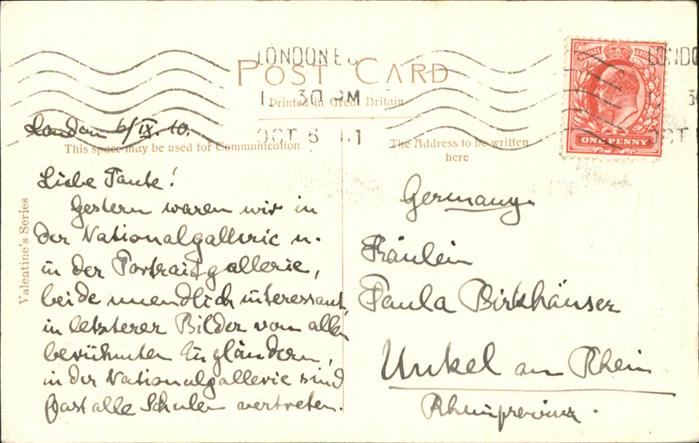 LONDON E.C
POST CARD
1. 30 PM
Printed in Great Britain
OCT 6 11
London 6/IX. 10.
This space may be used for Communication
The Address to be written
here
POSTAGE
ONE PENNY
LONDO
Valentine's Series
Liebe Tante!
Gestern waren wir in
der Nationalgallerie u.
in der Portraitgallerie,
beide unendlich interessant,
in letzterer Bilder von allen
berühmten Engländern,
in der Nationalgallerie sind
fast alle Schulen vertreten.
Germany
Fräulein
Paula Birkhäuser
Unkel am Rhein
Rheinprovinz.